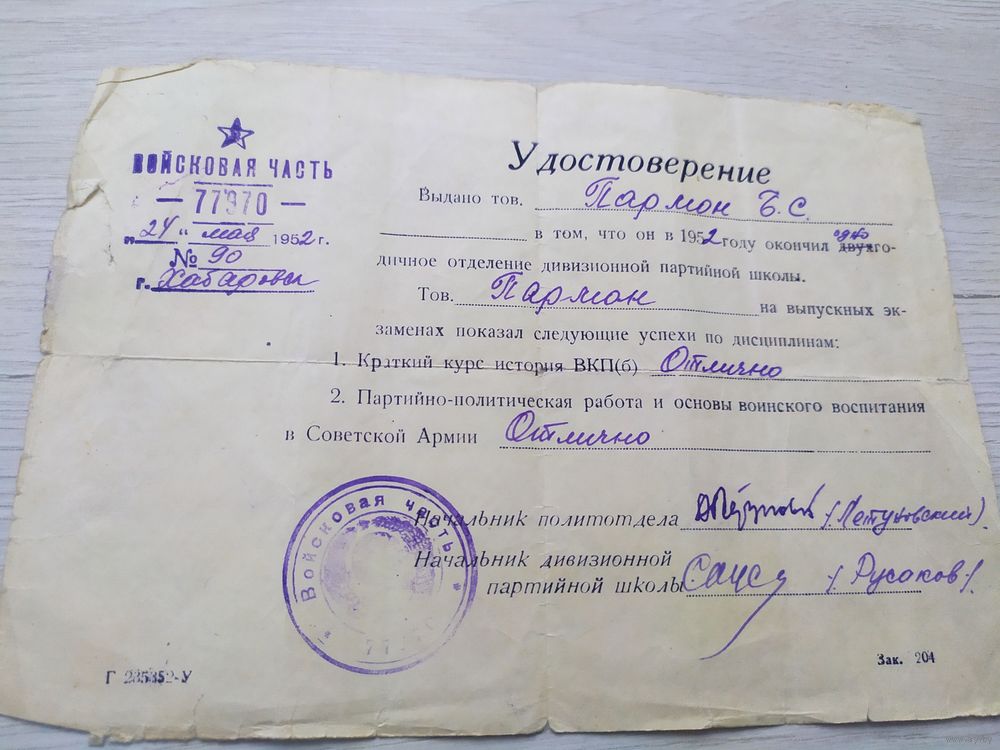 ВОЙСКОВАЯ ЧАСТЬ
— 77970 —
„24" мая 1952 г.
№ 90
г. Хабаровск
Удостоверение
Выдано тов. Пармон Б.С.
в том, что он в 1952 году окончил одно двухго-
дичное отделение дивизионной партийной школы.
Тов. Пармон на выпускных эк-
заменах показал следующие успехи по дисциплинам:
1. Краткий курс история ВКП(б) Отлично
2. Партийно-политическая работа и основы воинского воспитания
в Советской Армии Отлично
Войсковая часть
Начальник политотдела (Петуховский)
Начальник дивизионной
партийной школы (Русаков)
Г -У
Зак. 204